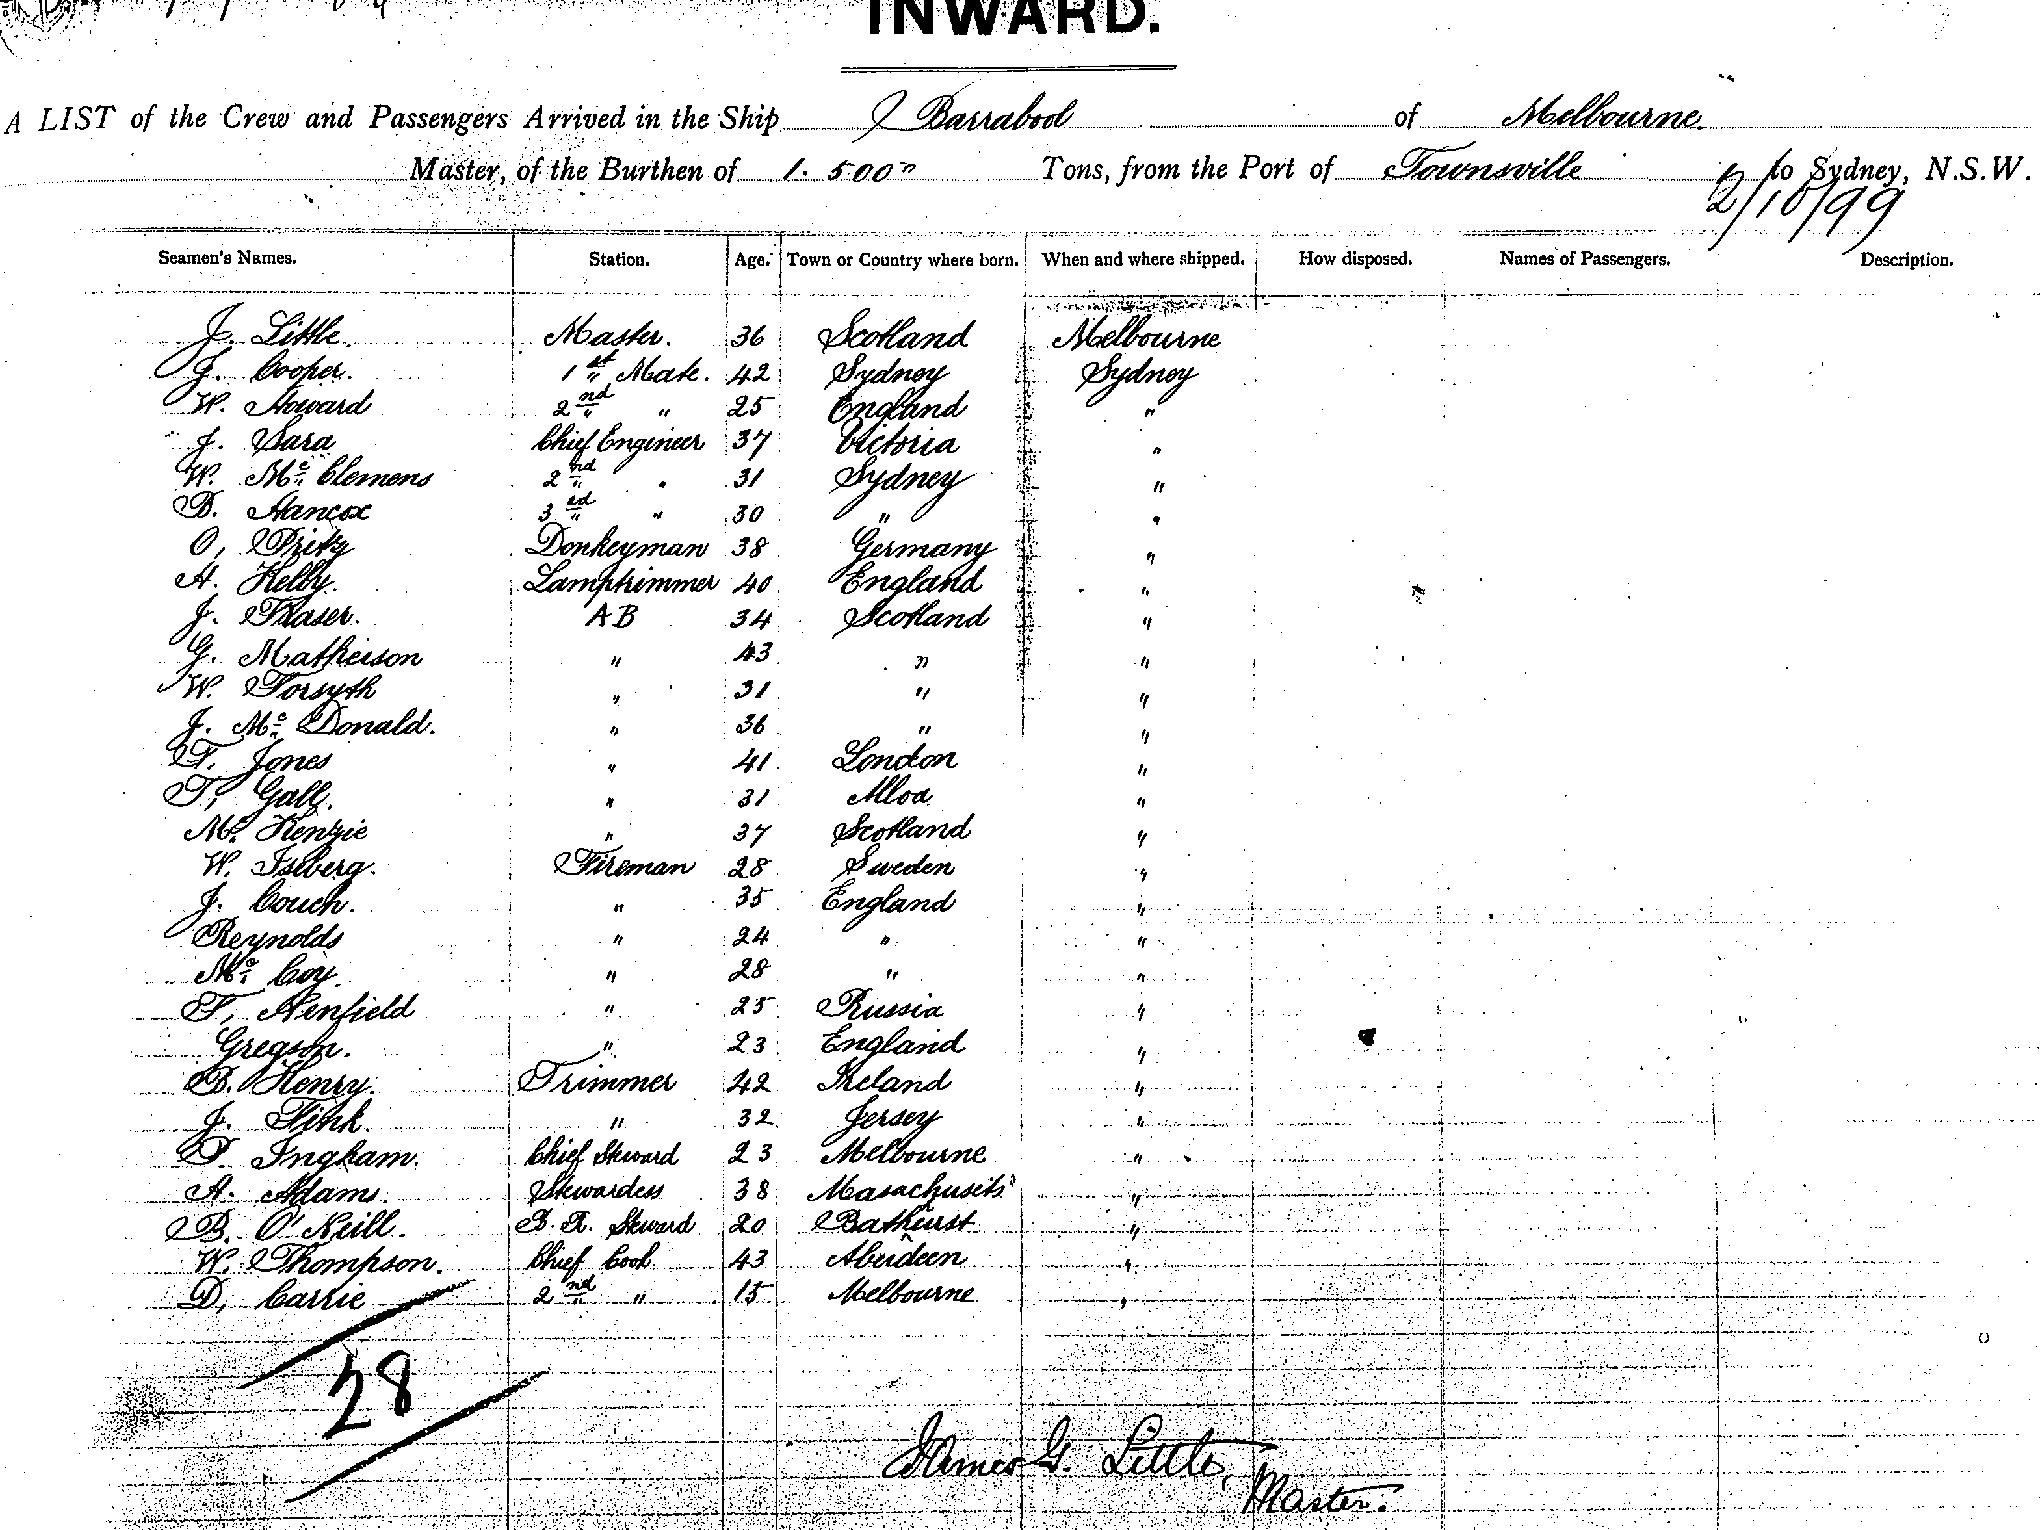 INWARD.
A LIST of the Crew and Passengers Arrived in the Ship Barrabool of Melbourne.
Master, of the Burthen of 1.500 Tons, from the Port of Townsville to Sydney, N.S.W.
2/10/99
Seamen's Names. Station. Age. Town or Country where born. When and where shipped. How disposed. Names of Passengers. Description.
J. Little. Master. 36 Scotland Melbourne
G. Cooper. 1st Mate. 42 Sydney Sydney
W. Howard 2nd " 25 England "
J. Sara Chief Engineer 37 Victoria "
W. Mc Clemens 2nd " 31 Sydney "
B. Hancox 3rd " 30 " "
O. Fritz Donkeyman 38 Germany "
H. Kelly. Lamptrimmer 40 England "
J. Fraser. AB 34 Scotland "
G. Matheison " 43 " "
W. Forsyth " 31 " "
J. Mc Donald. " 36 " "
T. Jones " 41 London "
T. Gall. " 31 Alloa "
Mc Kenzie " 37 Scotland "
W. Isberg. Fireman 28 Sweden "
J. Couch. " 35 England "
Reynolds " 24 " "
Mc Coy. " 28 " "
F. Henfield " 25 Russia "
Gregson. " 23 England "
B. Henry. Trimmer 42 Ireland "
J. Fink. " 32 Jersey "
Ingham. Chief Steward 23 Melbourne "
A. Adams. Stewardess 38 Masachusets "
B. O'Neill. Steward 20 Bathurst "
W. Thompson. Chief Cook 43 Aberdeen "
D. Carlie 2nd " 15 Melbourne "
28
James G. Little,
Master.